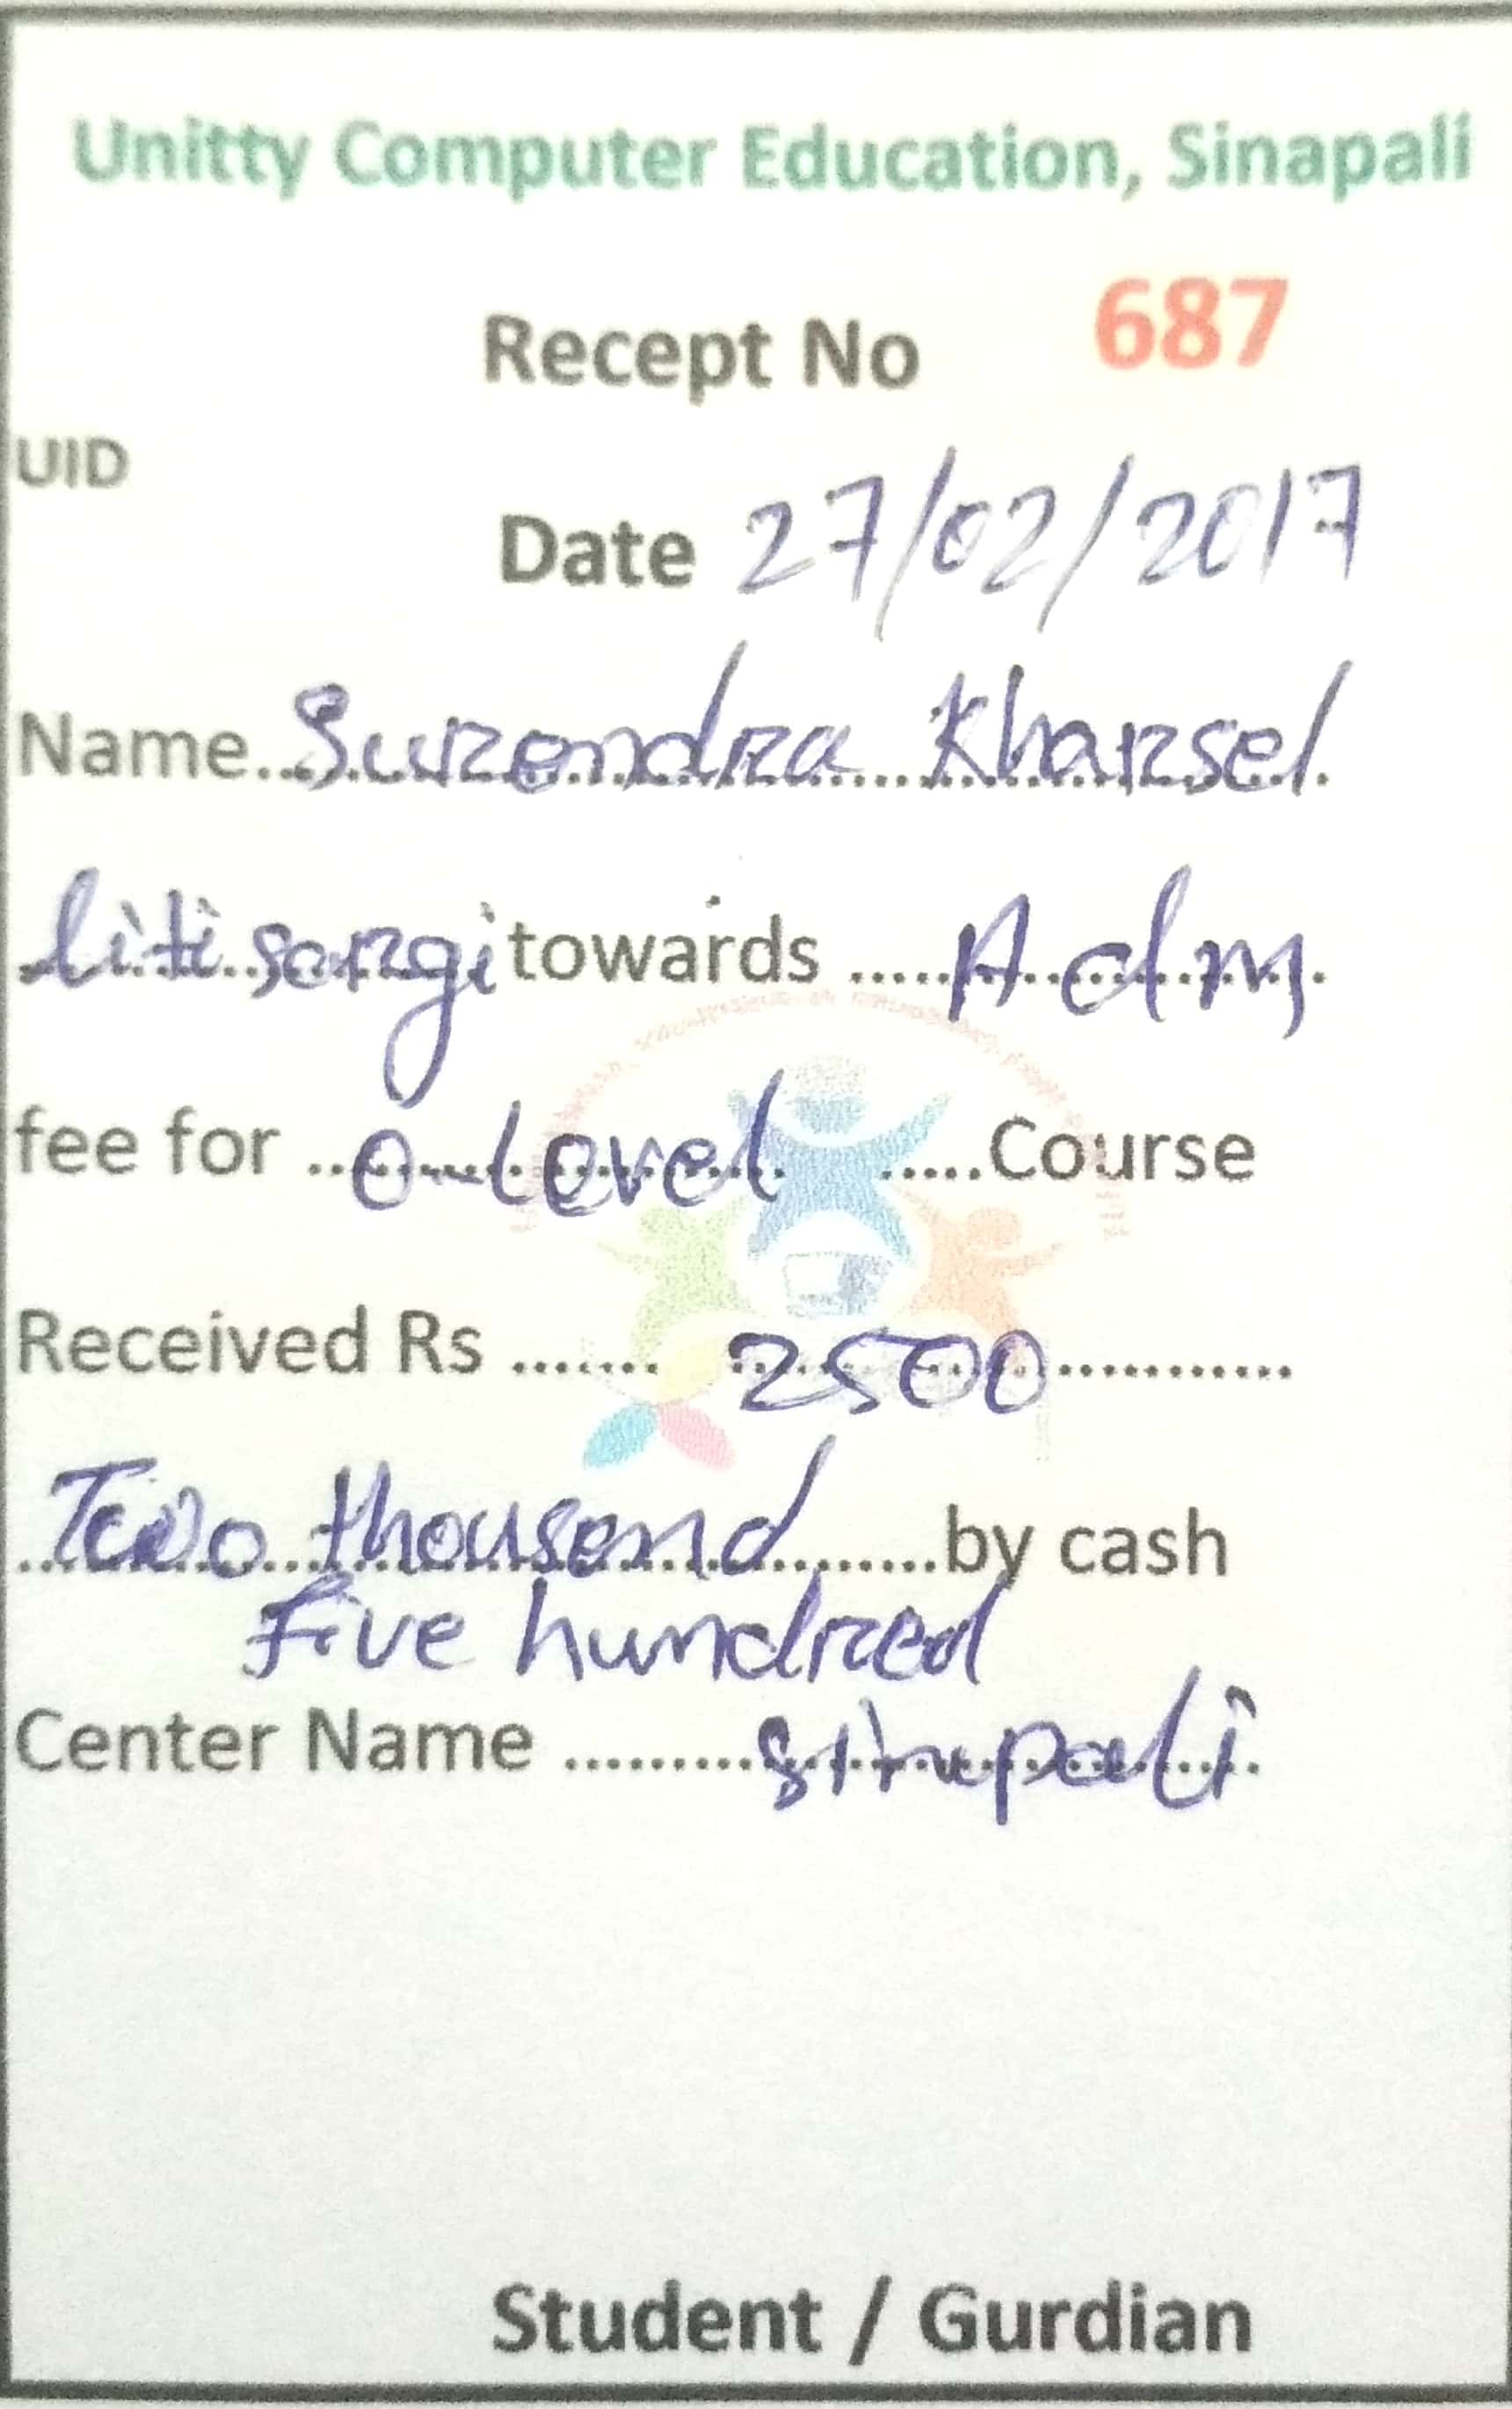 Unitty Computer Education, Sinapali
Recept No 687
UID
Date 27/02/2017
Name Surendra Kharsel
litisargi towards Adm
fee for O-Level Course
Received Rs 2500
Two thousand by cash
five hundred
Center Name Sinapali
Student / Gurdian